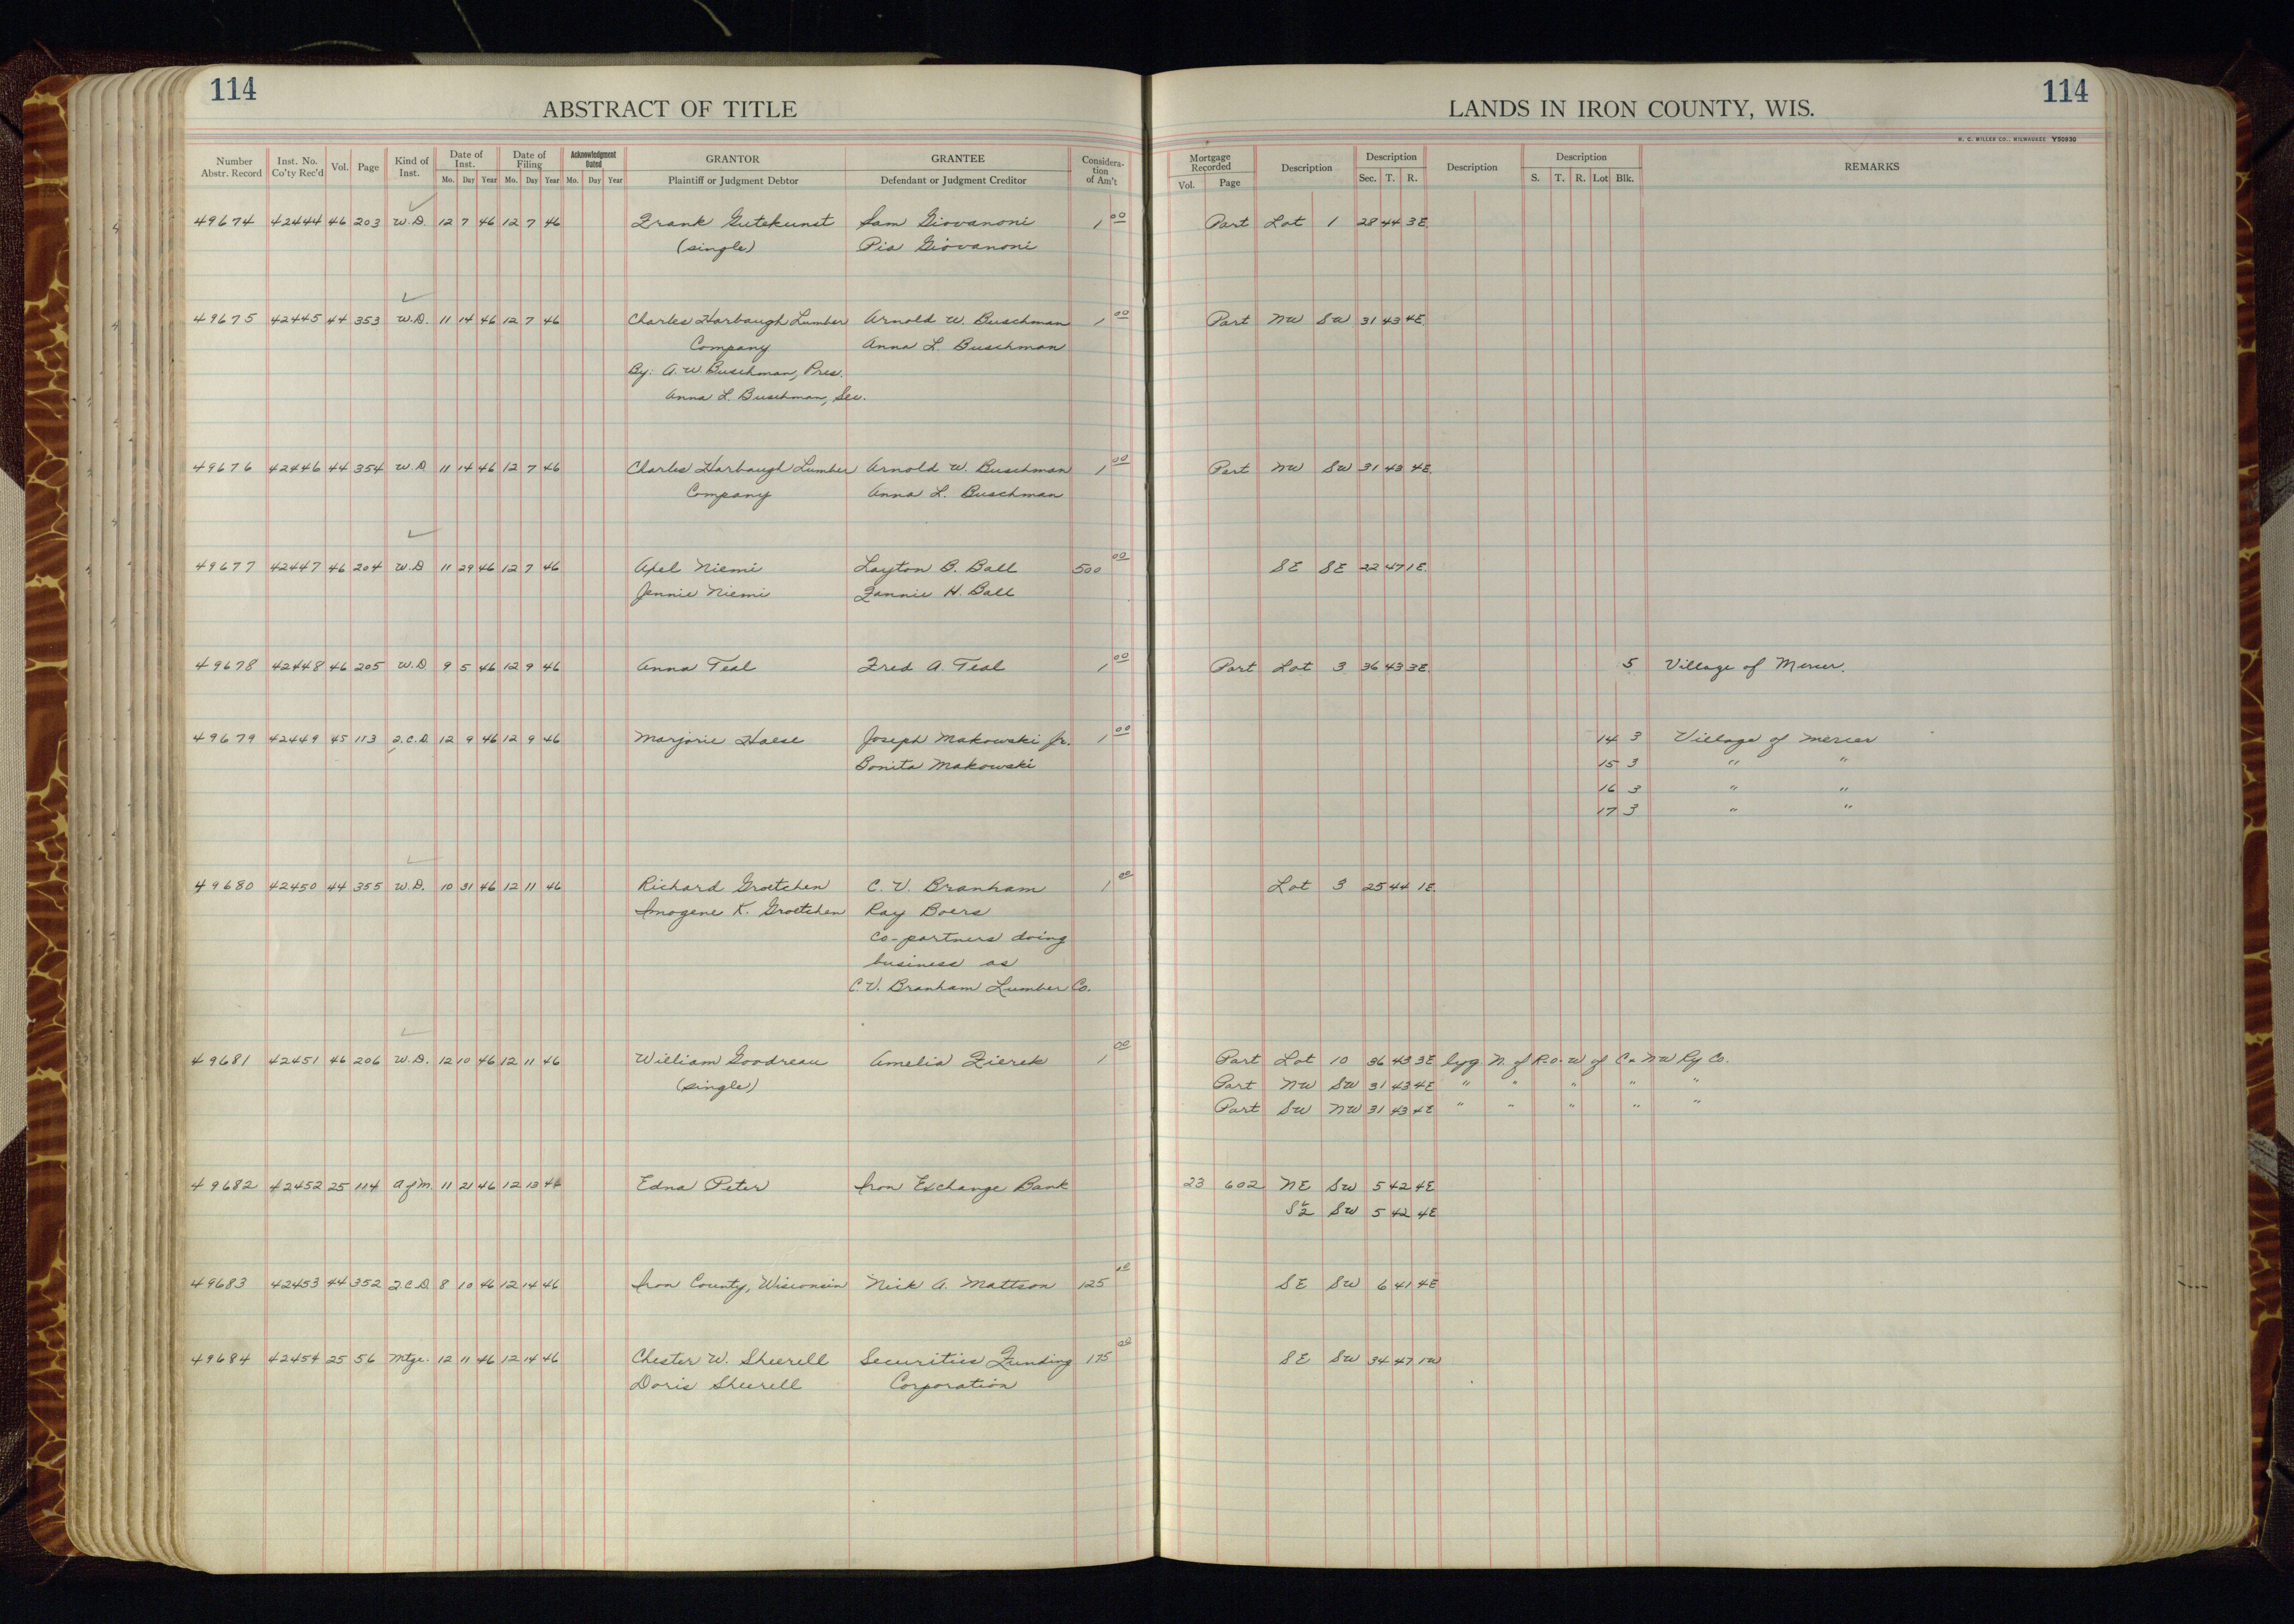 114
ABSTRACT OF TITLE
LANDS IN IRON COUNTY, WIS.
114
H. C. MILLER CO., MILWAUKEE Y50930
Number Abstr. Record Inst. No. Co'ty Rec'd Vol. Page Kind of Inst. Date of Inst. Date of Filing Acknowledgment Dated GRANTOR GRANTEE Considera-tion of Am't Mortgage Recorded Description Description Description Description REMARKS
Mo. Day Year Mo. Day Year Mo. Day Year Plaintiff or Judgment Debtor Defendant or Judgment Creditor Vol. Page Sec. T. R. S. T. R. Lot Blk.
49674 42444 46 203 W.D. 12 7 46 12 7 46 Frank Gutekunst Sam Giovanoni 1 00 Part Lot 1 28 44 3E
(single) Pia Giovanoni
49675 42445 44 353 W.D. 11 14 46 12 7 46 Charles Harbaugh Lumber Arnold W. Buschman 1 00 Part NW SW 31 43 4E
Company Anna L. Buschman
By: A. W. Buschman, Pres.
Anna L. Buschman, Sec.
49676 42446 44 354 W.D 11 14 46 12 7 46 Charles Harbaugh Lumber Arnold W. Buschman 1 00 Part NW SW 31 43 4E
Company Anna L. Buschman
49677 42447 46 204 W.D 11 29 46 12 7 46 Axel Niemi Layton B. Ball 500 00 SE SE 22 47 1E
Jennie Niemi Fannie H. Ball
49678 42448 46 205 W.D. 9 5 46 12 9 46 Anna Teal Fred A. Teal 1 00 Part Lot 3 36 43 3E 5 Village of Mercer.
49679 42449 45 113 Q.C.D. 12 9 46 12 9 46 Marjorie Haese Joseph Makowski Jr. 1 00 14 3 Village of Mercer
Bonita Makowski 15 3 " "
16 3 " "
17 3 " "
49680 42450 44 355 W.D. 10 31 46 12 11 46 Richard Groetchen C. V. Branham 1 00 Lot 3 25 44 1E
Imogene K. Groetchen Ray Boers
Co-partners doing
business as
C. V. Branham Lumber Co.
49681 42451 46 206 W.D. 12 10 46 12 11 46 William Goodreau Amelia Zierek 1 00 Part Lot 10 36 43 3E lyg N. of R.O.W of C & NW Ry Co.
(single) Part NW SW 31 43 4E " " " " "
Part SW NW 31 43 4E " " " " "
49682 42452 25 114 A of M. 11 21 46 12 13 46 Edna Peter Iron Exchange Bank 23 602 NE SW 5 42 4E
S½ SW 5 42 4E
49683 42453 44 352 Q.C.D. 8 10 46 12 14 46 Iron County, Wisconsin Nick A. Mattson 125 00 SE SW 6 41 4E
49684 42454 25 56 Mtge. 12 11 46 12 14 46 Chester W. Sheerell Securities Funding 175 00 SE SW 34 47 1W
Doris Sheerell Corporation